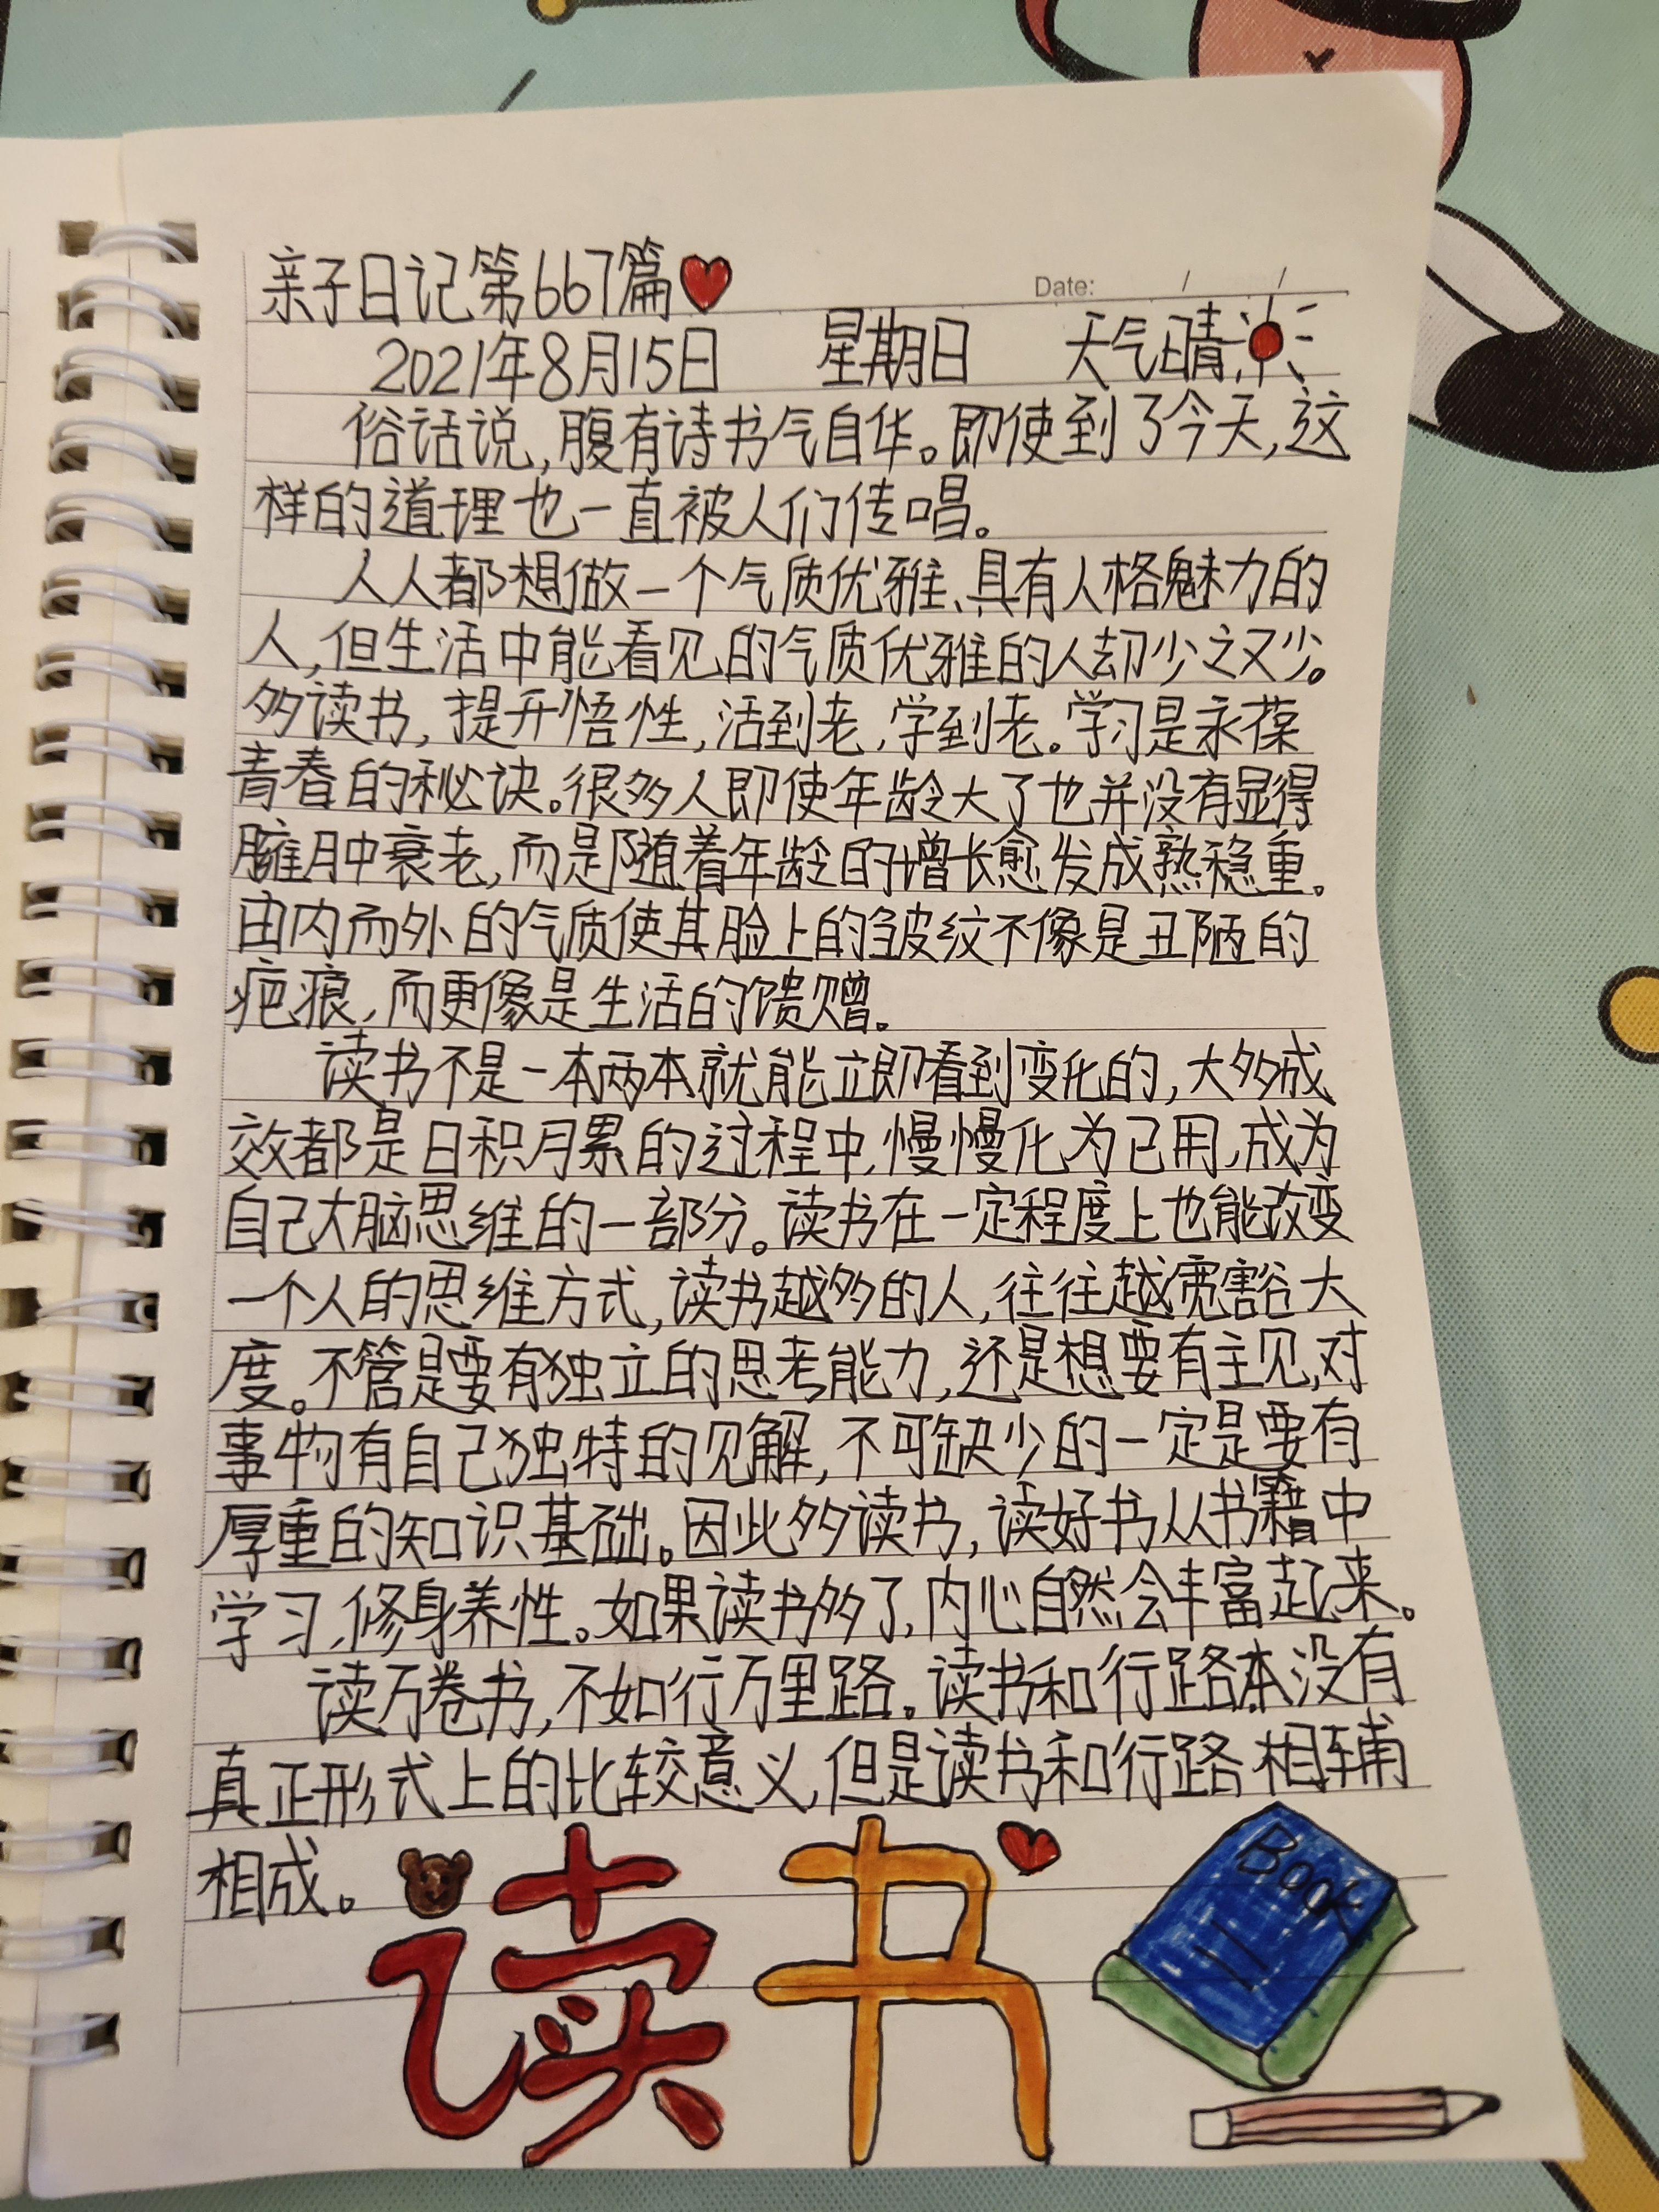 亲子日记第667篇
Date: / /
2021年8月15日 星期日 天气晴
俗话说,腹有诗书气自华。即使到了今天,这
样的道理也一直被人们传唱。
人人都想做一个气质优雅、具有人格魅力的
人,但生活中能看见的气质优雅的人却少之又少。
多读书,提升悟性,活到老,学到老。学习是永葆
青春的秘诀。很多人即使年龄大了也并没有显得
臃肿衰老,而是随着年龄的增长愈发成熟稳重。
由内而外的气质使其脸上的皱纹不像是丑陋的
疤痕,而更像是生活的馈赠。
读书不是一本两本就能立即看到变化的,大多成
效都是日积月累的过程中,慢慢化为已用,成为
自己大脑思维的一部分。读书在一定程度上也能改变
一个人的思维方式,读书越多的人,往往越宽豁大
度。不管是要有独立的思考能力,还是想要有主见,对
事物有自己独特的见解,不可缺少的一定是要有
厚重的知识基础。因此多读书,读好书从书籍中
学习,修身养性。如果读书多了,内心自然会丰富起来。
读万卷书,不如行万里路。读书和行路本没有
真正形式上的比较意义,但是读书和行路相辅
相成。
读书
Book